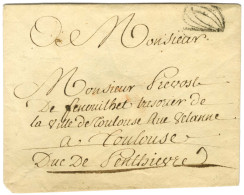 A Monsieur
Monsieur Prevost
De fenouillet tresorier de
la Ville de Toulouse Rue Velanne
a Toulouse
Duc De Penthievre